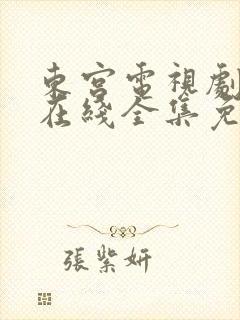 東宮電視劇
在綫全集免
張紫妍